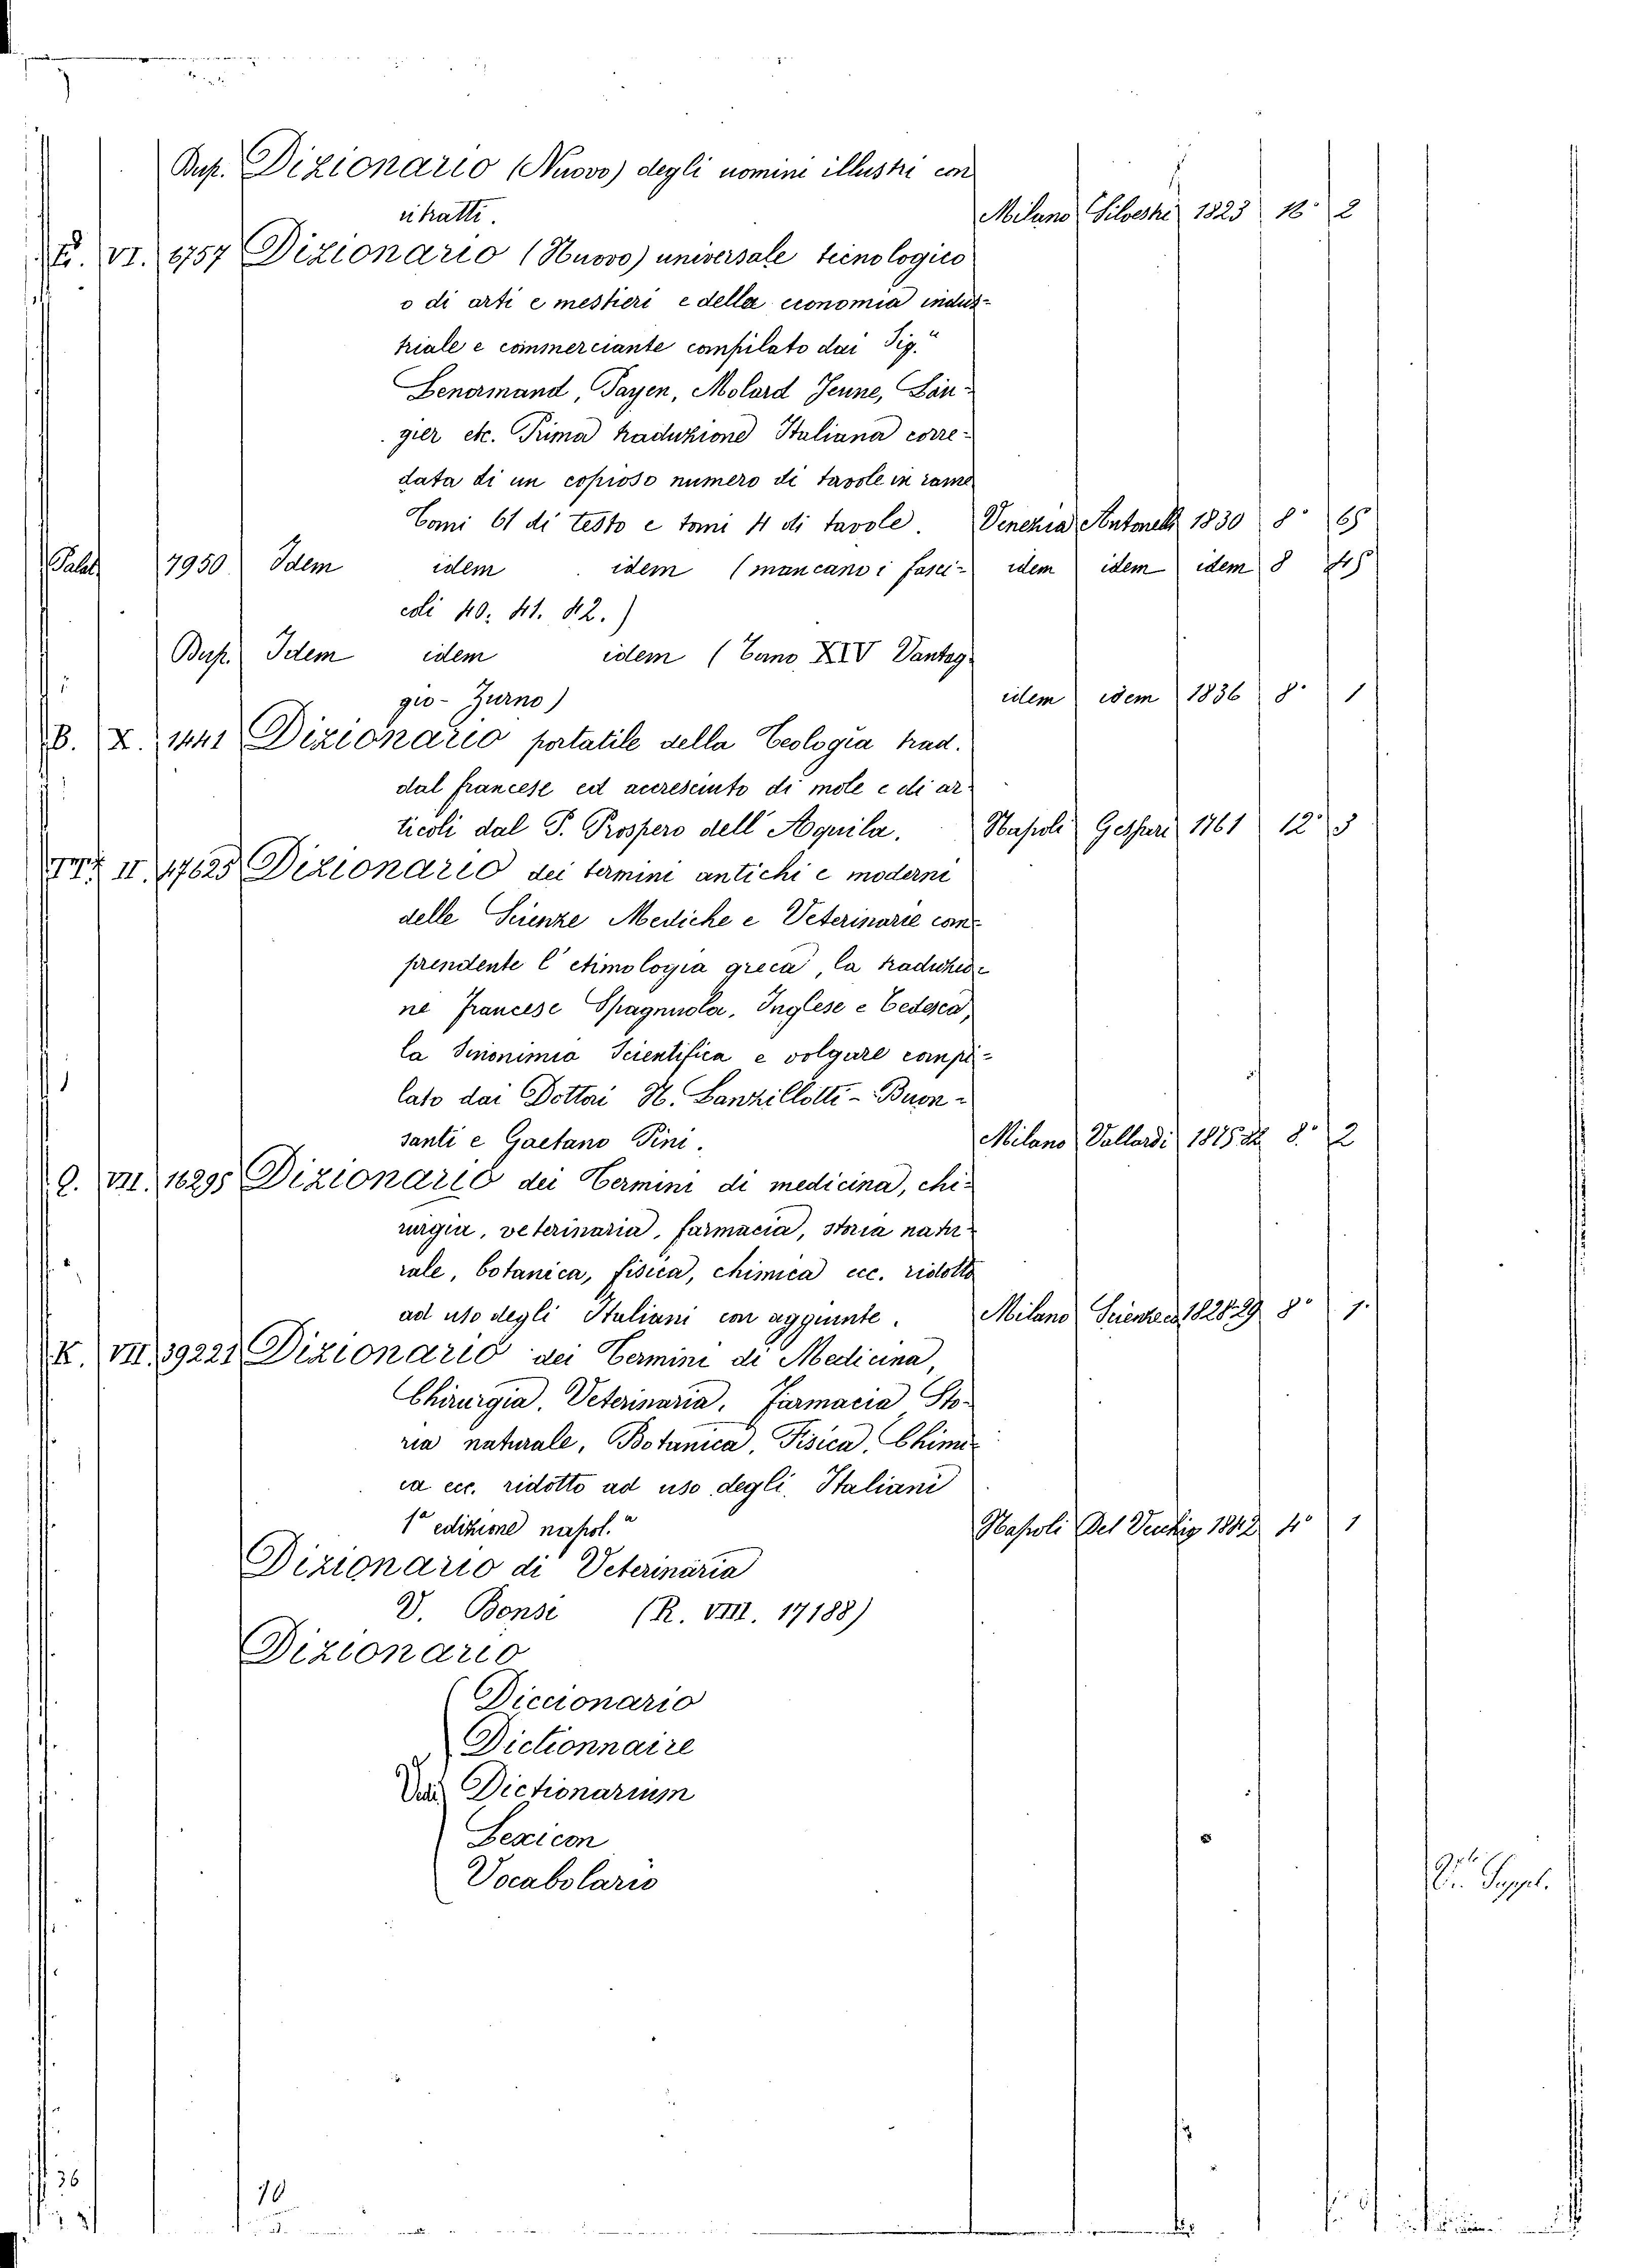 Busp. Dizionario (Nuovo) degli uomini illustri con
ritratti. Milano Silvestri 1823 18° 2
VI. 6757 Dizionario (Nuovo) universale tecnologico
o di arti e mestieri e della economia indus-
triale e commerciante compilato dai Sig.ri
Lenormand, Payen, Molard Jeune, Lau-
gier etc. Prima traduzione Italiana corre-
data di un copioso numero di tavole in rame
Tomi 61 di testo e tomi 4 di tavole. Venezia Antonelli 1830 8° 65
Palat. 7950 Idem idem idem (mancano i fasci- idem idem idem 8 45
coli 40. 41. 42.)
Busp. Idem idem idem (Tomo XIV Vantag-
gio - Zurno) idem idem 1836 8° 1
B. X. 1441 Dizionario portatile della Teologia trad.
dal francese ed accresciuto di mole e di ar-
ticoli dal P. Prospero dell'Aquila. Napoli Gessari 1761 12° 3
II. 47625 Dizionario dei termini antichi e moderni
delle Scienze Mediche e Veterinarie com-
prendente l'etimologia greca, la traduzio-
ne Francese Spagnuola, Inglese e Tedesca,
la Sinonimia Scientifica e volgare compi-
lato dai Dottori N. Lanzillotti-Buon-
santi e Gaetano Pini. Milano Vallardi 1875 8° 2
Q. VII. 16295 Dizionario dei Termini di medicina, chi-
rurgia, veterinaria, farmacia, storia natu-
rale, botanica, fisica, chimica ecc. ridotto
ad uso degli Italiani con aggiunte. Milano 1828-29 8° 1.
K. VII. 39221 Dizionario dei Termini di Medicina,
Chirurgia. Veterinaria, Farmacia, Sto-
ria naturale, Botanica, Fisica, Chimi-
ca ecc. ridotto ad uso degli Italiani
1a edizione napol.a Napoli Del Vecchio 1842 4° 1
Dizionario di Veterinaria
V. Bonsi (R. VIII. 17188)
Dizionario
Diccionario
Dictionnaire
Vedi Dictionarium
Lexicon
Vocabolario
V. Suppl.
36
70